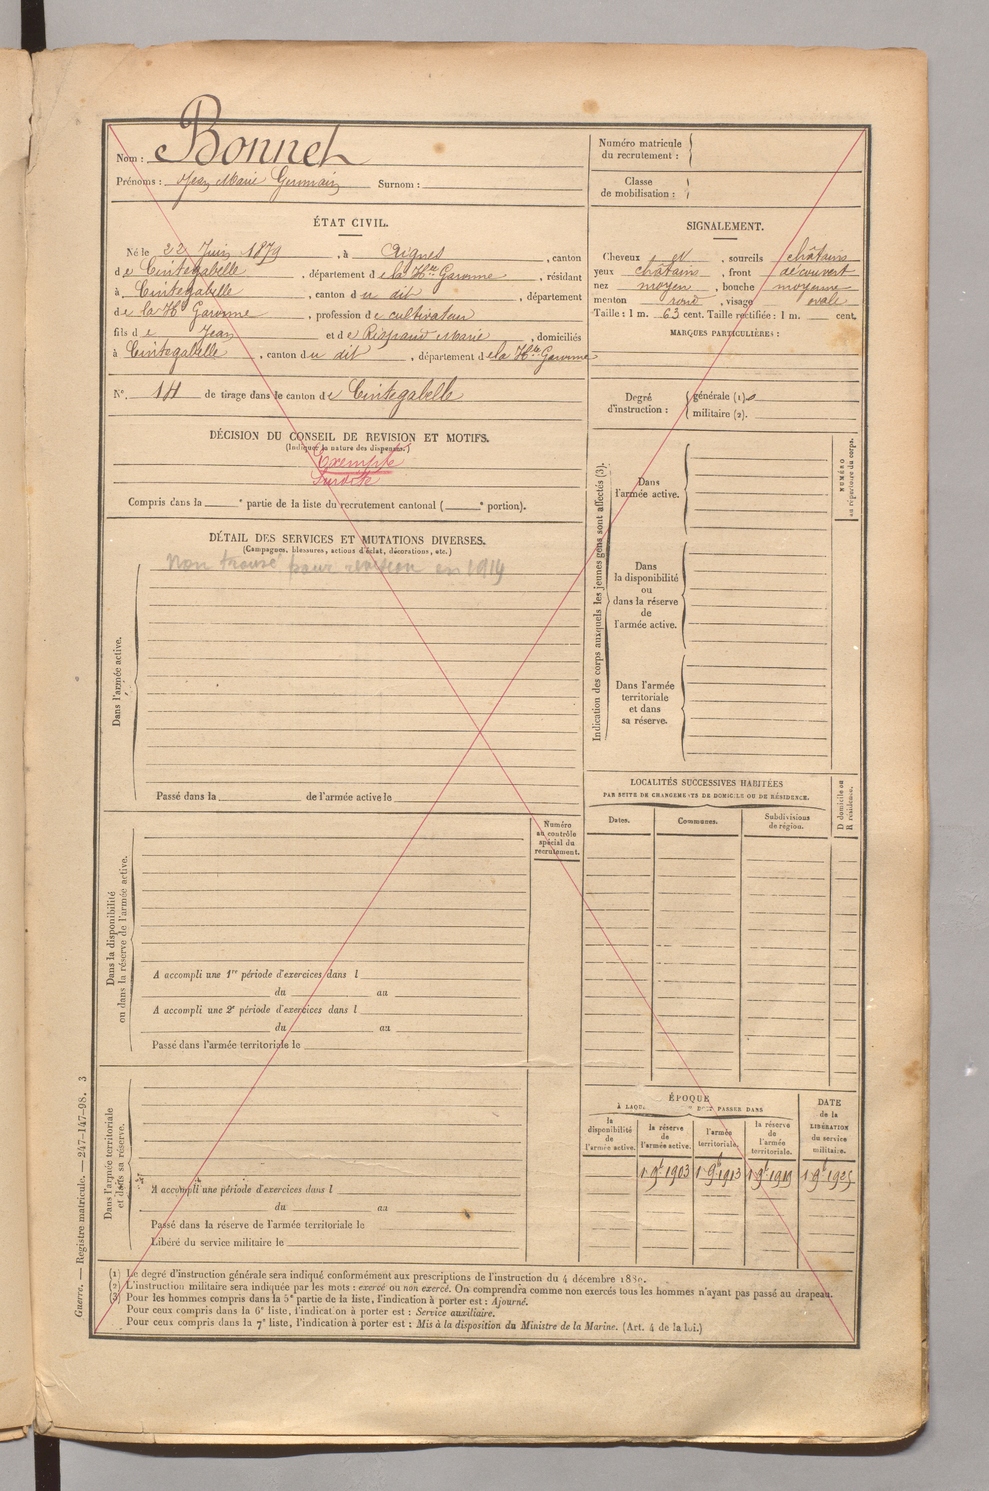 Nom : Bonnet
Prénoms : Jean Marie Germain Surnom :
ÉTAT CIVIL.
Né le 22 Juin 1879, à Aignes, canton
de Cintegabelle, département de la Hte Garonne, résidant
à Cintegabelle, canton du dit, département
de la Hte Garonne, profession de cultivateur
fils de Jean et de Marie, domiciliés
à Cintegabelle, canton du dit, département de la Hte Garonne
No. 14 de tirage dans le canton de Cintegabelle
DÉCISION DU CONSEIL DE REVISION ET MOTIFS.
(Indiquer la nature des dispenses.)
Exempté
Surdité
Compris dans la e partie de la liste du recrutement cantonal ( e portion).
DÉTAIL DES SERVICES ET MUTATIONS DIVERSES.
(Campagnes, blessures, actions d'éclat, décorations, etc.)
Non trouvé pour revision en 1914
Dans l'armée active.
Passé dans la de l'armée active le
Numéro
au contrôle
spécial du
recrutement.
Dans la disponibilité
ou dans la réserve de l'armée active.
A accompli une 1re période d'exercices dans l
du au
A accompli une 2e période d'exercices dans l
du au
Passé dans l'armée territoriale le
Dans l'armée territoriale
et dans sa réserve.
A accompli une période d'exercices dans l
du au
Passé dans la réserve de l'armée territoriale le
Libéré du service militaire le
Numéro matricule
du recrutement :
Classe
de mobilisation :
SIGNALEMENT.
Cheveux et, sourcils châtains
yeux châtains, front découvert
nez moyen, bouche moyenne
menton rond, visage ovale
Taille : 1 m. 63 cent. Taille rectifiée : 1 m. cent.
MARQUES PARTICULIÈRES :
Degré
d'instruction :
générale (1). 0
militaire (2).
Indication des corps auxquels les jeunes gens sont affectés (3).
NUMÉRO
au répertoire du corps.
Dans
l'armée active.
Dans
la disponibilité
ou
dans la réserve
de
l'armée active.
Dans l'armée
territoriale
et dans
sa réserve.
LOCALITÉS SUCCESSIVES HABITÉES
PAR SUITE DE CHANGEMENTS DE DOMICILE OU DE RÉSIDENCE.
D domicile ou
R résidence.
Dates. Communes. Subdivisions
de région.
ÉPOQUE
À LAQU DOIT PASSER DANS
la
disponibilité
de
l'armée active.
la réserve
de
l'armée active.
l'armée
territoriale.
la réserve
de
l'armée
territoriale.
DATE
de la
LIBÉRATION
du service
militaire.
1 9bre 1903 1 9bre 1913 1 9bre 1919 1 9bre 1925
(1) Le degré d'instruction générale sera indiqué conformément aux prescriptions de l'instruction du 4 décembre 1889.
(2) L'instruction militaire sera indiquée par les mots : exercé ou non exercé. On comprendra comme non exercés tous les hommes n'ayant pas passé au drapeau.
(3) Pour les hommes compris dans la 5e partie de la liste, l'indication à porter est : Ajourné.
Pour ceux compris dans la 6e liste, l'indication à porter est : Service auxiliaire.
Pour ceux compris dans la 7e liste, l'indication à porter est : Mis à la disposition du Ministre de la Marine. (Art. 4 de la loi.)
Guerre. — Registre matricule. — 247-147-98. 3